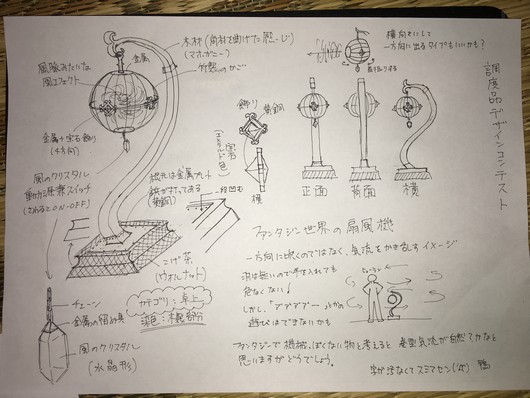 調度品デザインコンテスト
木材(角材を曲げた感じ)
(マホガニー)
竹製のかご
金属
風脈みたいな
風エフェクト
金属+宝石飾り
(4方向)
風のクリスタル
動力兼スイッチ
(さわるとON-OFF)
チェーン
金属の留め具
風のクリスタル
(水晶形)
根元は金属プレート
(黄銅)
一段凹む
こげ茶
(ウォルナット)
カテゴリ:卓上
染色:木製部分
飾り
黄銅
宝石
(エメラルド色)
横
横向きにして
一方向に出るタイプもいいかも?
正面
背面
横
ファンタジー世界の扇風機
一方向に吹くのではなく、気流をかき乱すイメージ
羽は無いので手を入れても
危なくない!
しかし、「アアアアアー」とかの
遊びはできないかも
ファンタジーで機械っぽくない物と考えると
乱気流が自然?かなと
思いますがどうでしょう。
字が汚なくてスミマセン(汗)